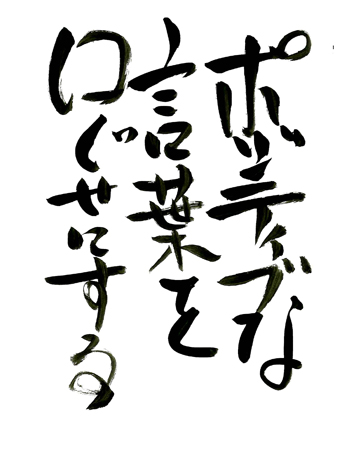 ポジティブな
言葉を
口ぐせにする